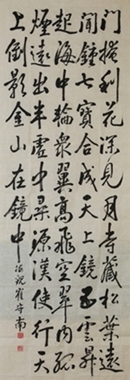 門掩梨花深見月寺藏松葉遠
聞鐘七寶合成天上鏡五雲昇
起海中輪眾翼高飛空碧內孤
煙遠出半虛中尋源漢使行天
上倒影金山在鏡中 崔守南